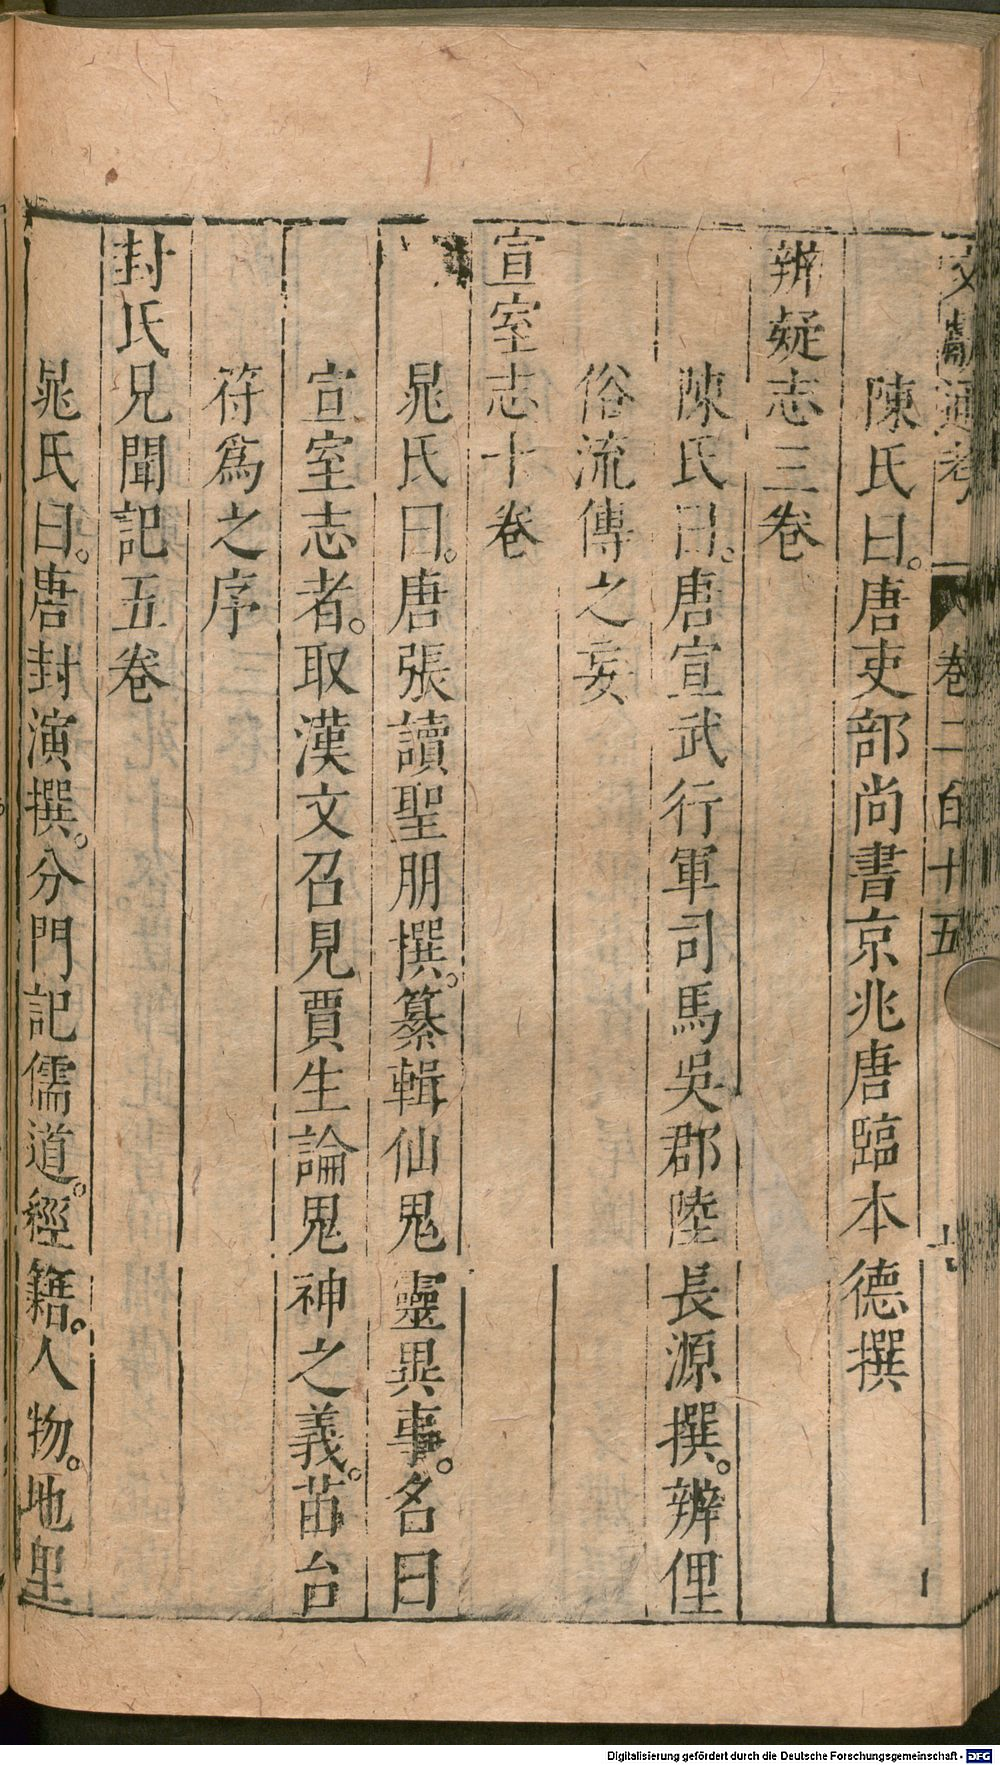 文獻通考 卷二百十五
陳氏曰。唐吏部尚書京兆唐臨本德撰
辨疑志三卷
陳氏曰。唐宣武行軍司馬吳郡陸長源撰。辨俚
俗流傳之妄
宣室志十卷
晁氏曰。唐張讀聖朋撰。纂輯仙鬼靈異事。名曰
宣室志者。取漢文召見賈生論鬼神之義。苗台
符爲之序
封氏見聞記五卷
晁氏曰。唐封演撰。分門記儒道。經籍。人物。地里
Digitalisierung gefördert durch die Deutsche Forschungsgemeinschaft - DFG